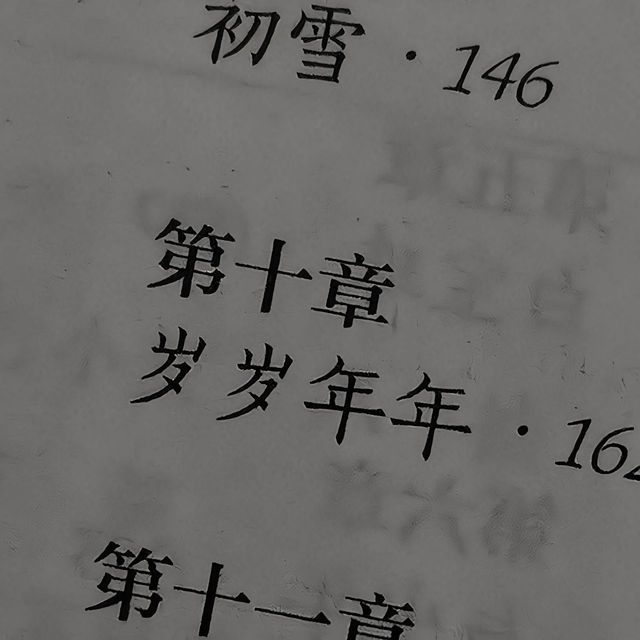 初雪·146
第十章
岁岁年年·162
第十一章